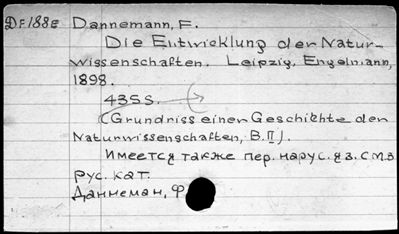 DF.188E Dannemann, F.
Die Entwicklung der Natur-
wissenschaften. Leipzig, Engelmann,
1898.
435 S.
(Grundriss einer Geschichte der
Naturwissenschaften, B. II).
Имеется также пер. на рус. яз. см. в
рус. кат.
Даннеман, Ф